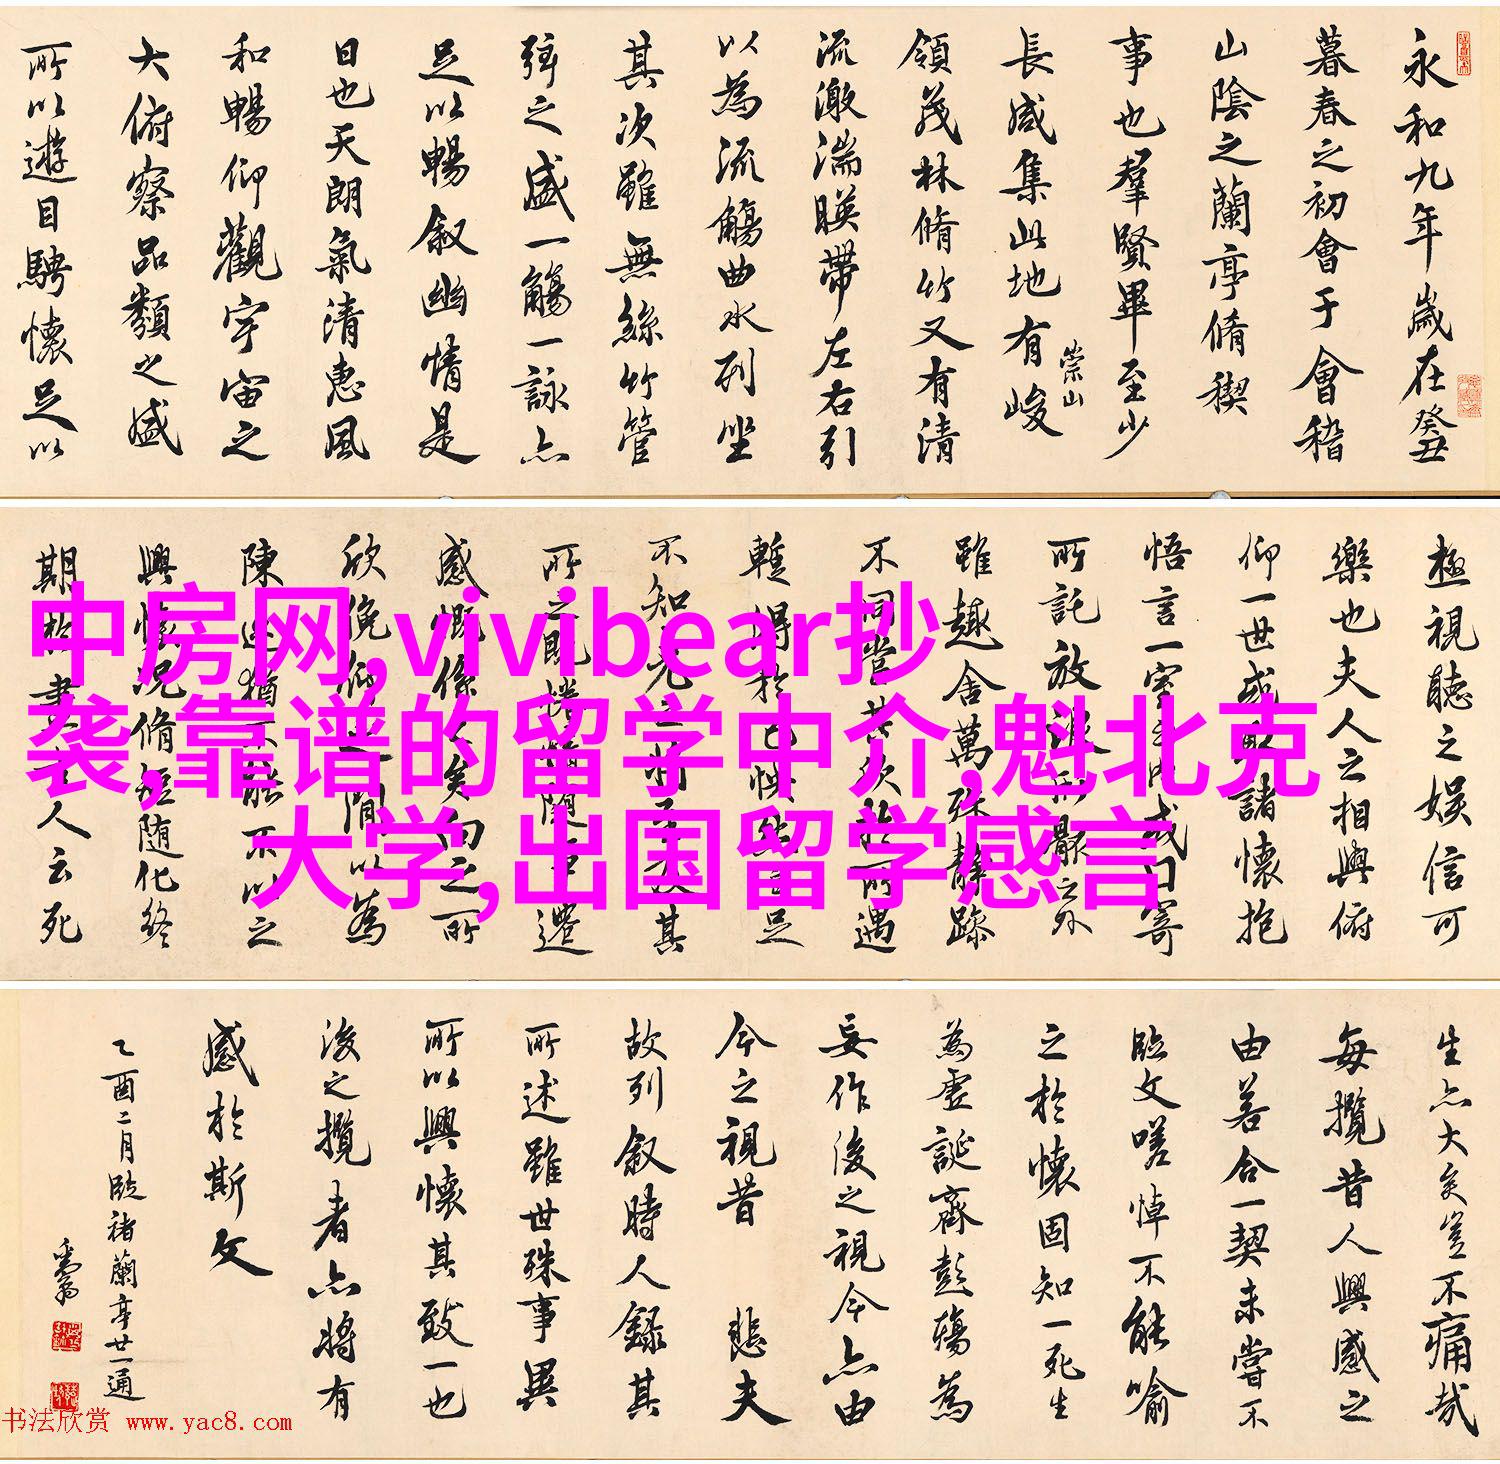 永和九年歲在癸丑
暮春之初會于會稽
山陰之蘭亭脩稧
事也羣賢畢至少
長咸集此地有峻
崇山
領茂林脩竹又有清
流激湍暎帶左右引
以為流觴曲水列坐
其次雖無絲竹管
弦之盛一觴一詠亦
足以暢叙幽情是
日也天朗氣清惠風
和暢仰觀宇宙之
大俯察品類之盛
所以遊目騁懷足以
極視聽之娛信可
樂也夫人之相與俯
仰一世或取諸懷抱
悟言一室之内或因寄
所託放浪形骸之外
雖趣舍萬殊靜躁
不同當其欣於所遇
暫得於己怏然自足
不知老之將至及其
所之既惓情隨事遷
感慨係之矣向之所
欣俛仰之間以為
陳迹猶不能不以之
興懷況脩短隨化終
期於盡古人云死
生亦大矣豈不痛哉
每攬昔人興感之
由若合一契未嘗不
臨文嗟悼不能喻
之於懷固知一死生
為虛誕齊彭殤為
妄作後之視今亦由
今之視昔 悲夫
故列叙時人錄其
所述雖世殊事異
所以興懷其致一也
後之攬者亦將有
感於斯文
乙酉二月臨褚蘭亭廿一通
中房网,vivibear抄
袭,靠谱的留学中介,魁北克
大学,出国留学感言
书法欣赏 www.yac8.com